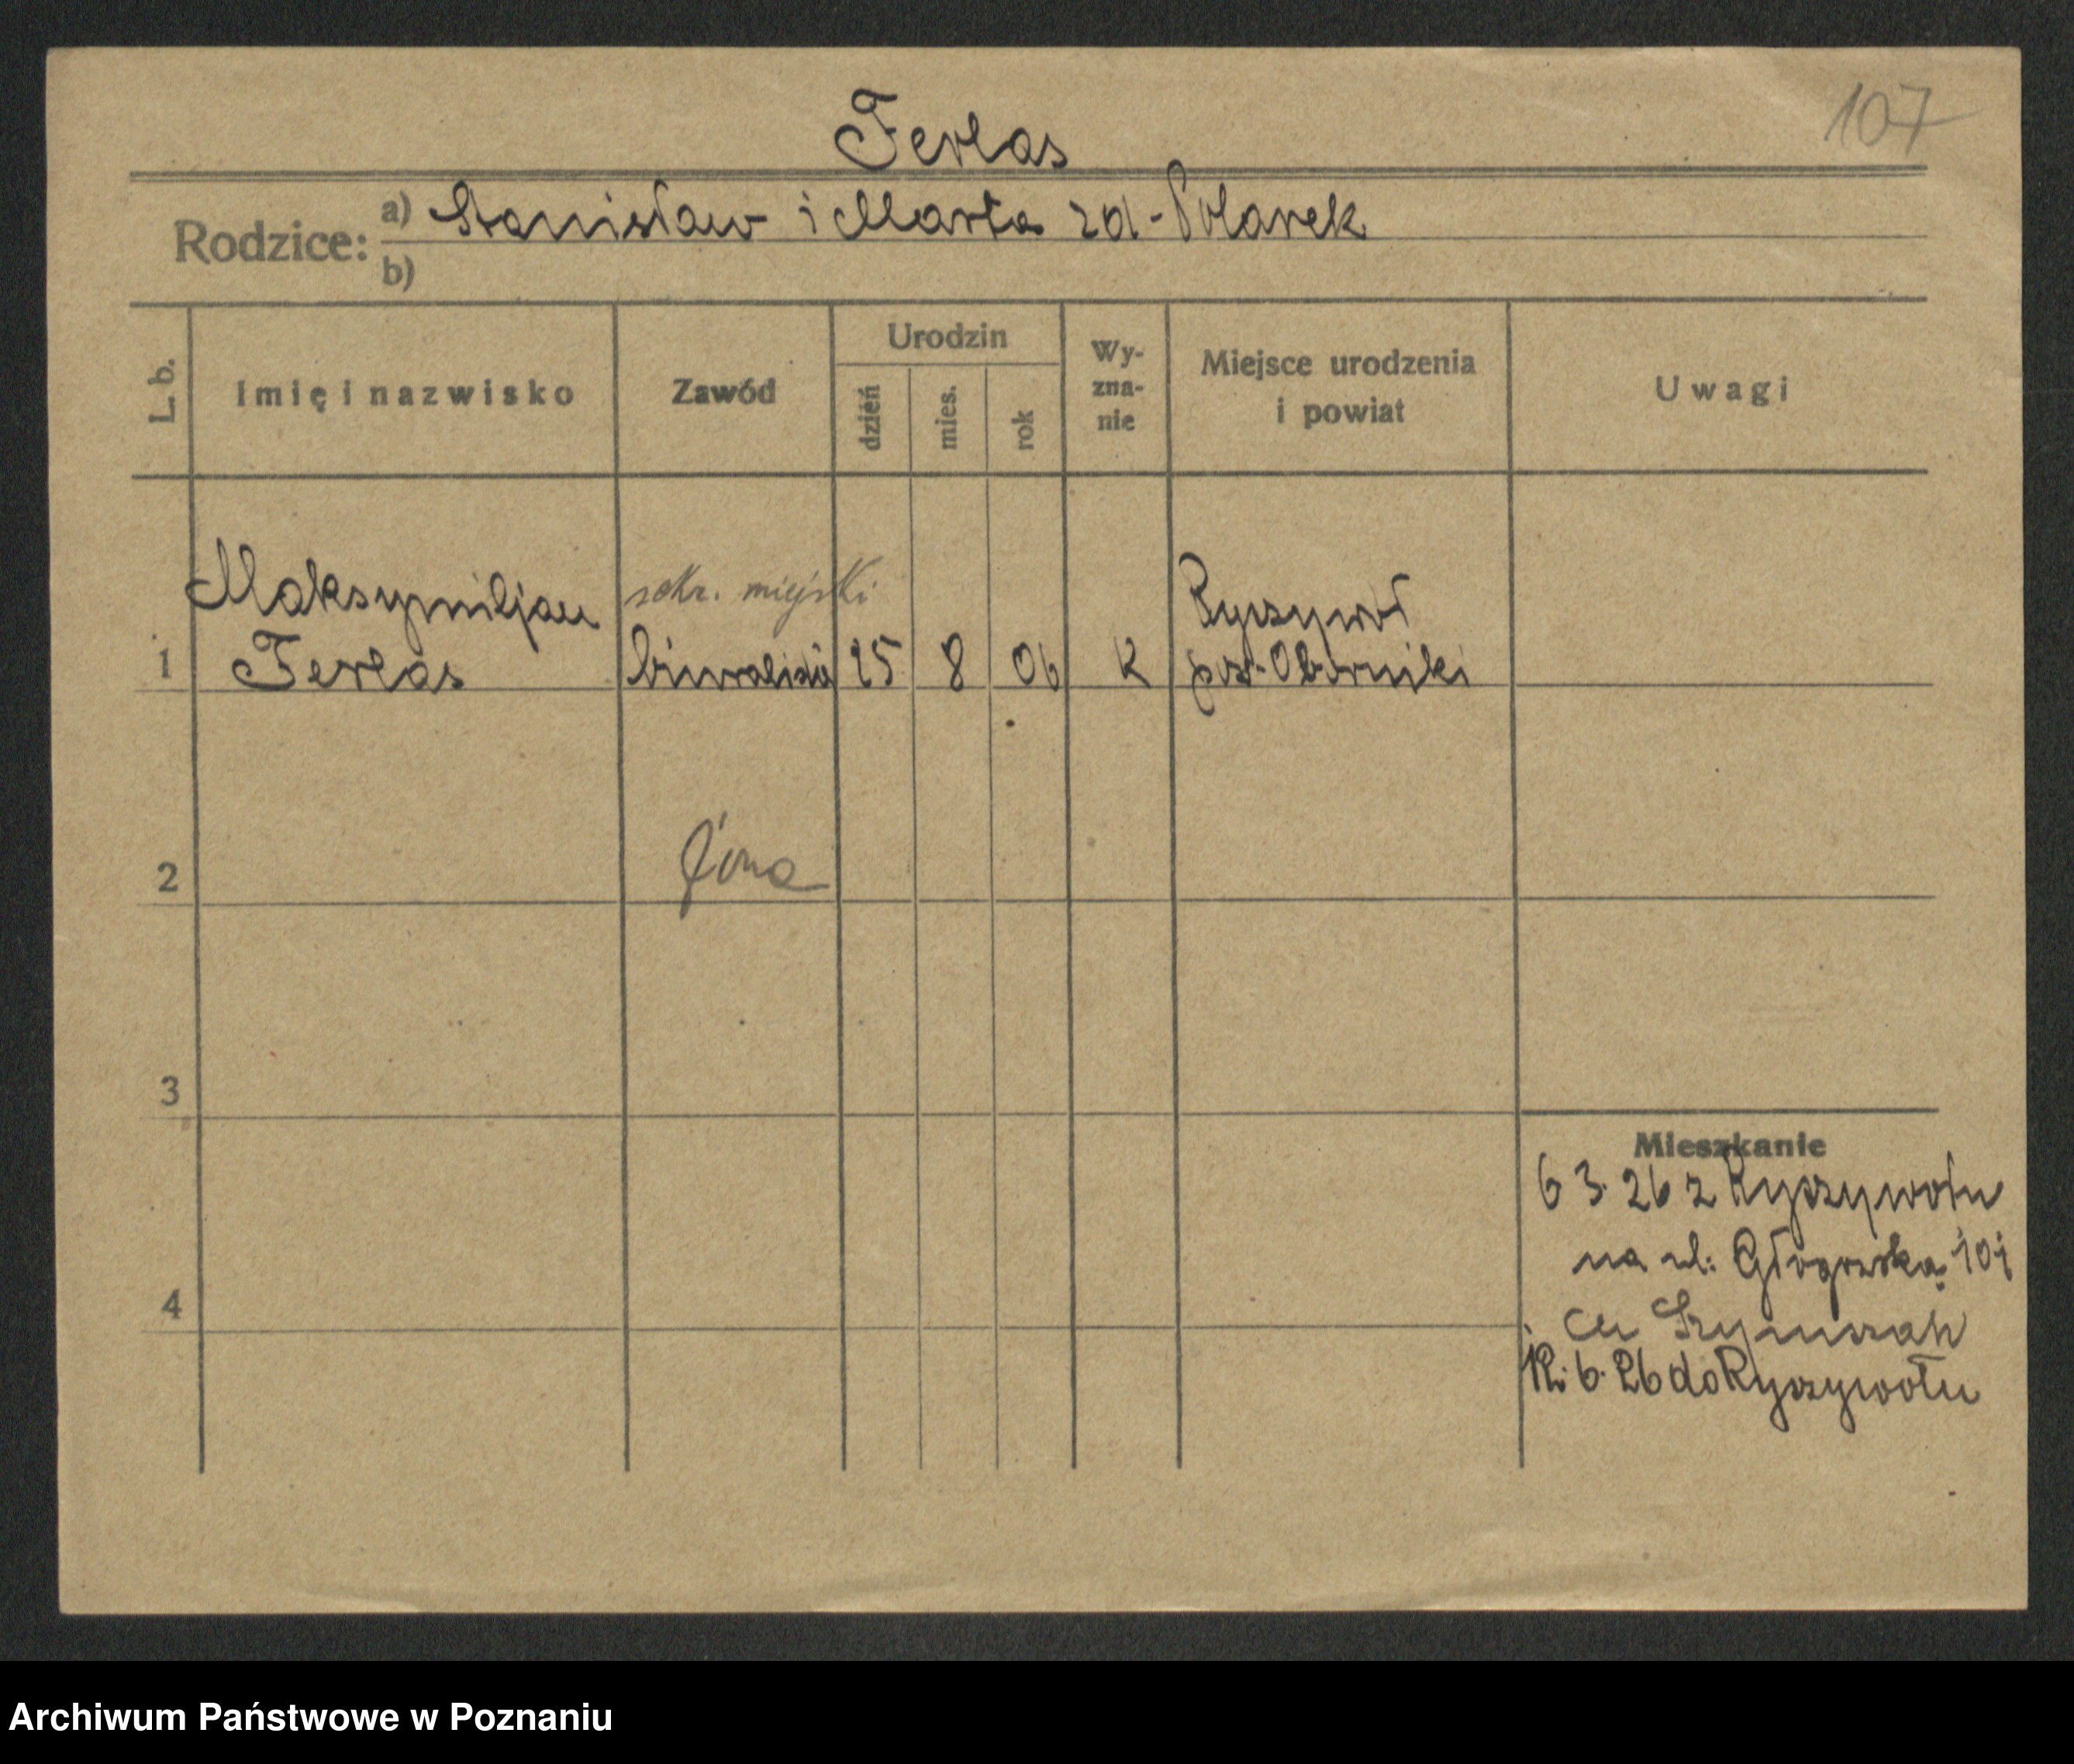 107
Ferlas
Rodzice: a) Stanisław i Marta zd. Polarek
b)
L. b. Imię i nazwisko Zawód Urodzin dzień mies. rok Wyznanie Miejsce urodzenia i powiat Uwagi
Maksymiljan sekr. miejski Ryszywół
1 Ferlas biuralista 25 8 06 K pow. Oborniki
2 żona
3
Mieszkanie
6 3. 26 z Ryszywołu
na ul: Głogowska 101
4
cu Szymczak
12. 6. 26 do Ryszywołu
Archiwum Państwowe w Poznaniu